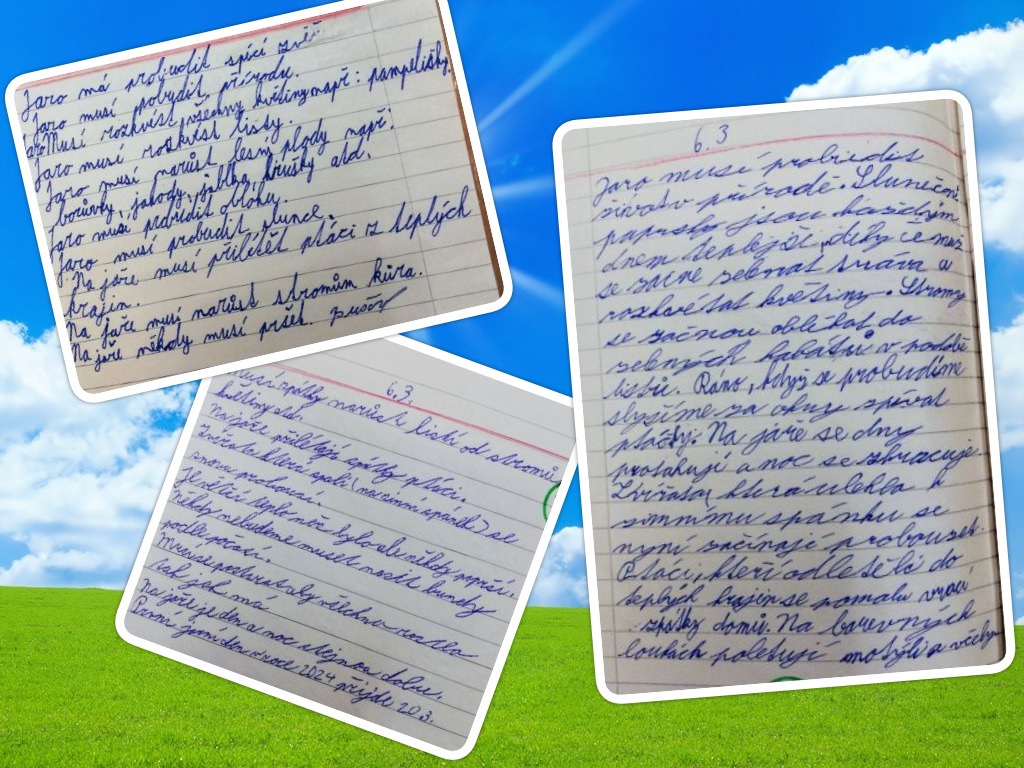 Jaro má probudit spící zvěř
Jaro musí pobudit přírodu.
Jaro Musí rozkvést všechny květiny např: pampelišky.
Jaro musí rozkvést listy.
Jaro musí narůst lesní plody např:
borůvky, jahody, jablka, hrušky atd.
Jaro musí probudit oblohu.
Jaro musí probudit slunce.
Na jaře musí přilétět ptáci z teplých
krajin.
Na jaře musí narůst stromům kůra.
Na jaře někdy musí pršet.
6.3
Musí zpátky narůst listí od stromů,
květiny atd.
Na jaře přilétají zpátky ptáci.
Zvířata která spali (na zimní spánek) se
znovu probouzí.
Je větší teplo než bylo ale někdy poprší.
Někdy nebudeme muset nosit bundy
podle počasí.
Musí se postarat aby všechno rostlo
tak jak má.
Na jaře je den a noc stejnou dobu.
První jarní den v roce 2024 přijde 20.3.
6.3
Jaro musí probudit
život v přírodě. Sluneční
paprsky jsou každým
dnem teplejší, díky čemuž
se začne zelenat tráva a
rozkvétat květiny. Stromy
se začnou oblékat do
zelených kabátů v podobě
listů. Ráno, když se probudíme
slyšíme za okny zpívat
ptáčky. Na jaře se dny
protahují a noc se zkracuje.
Zvířata, která ulehla k
zimnímu spánku se
nyní začínají probouzet
Ptáci, kteří odletěli do
teplých krajin se pomalu vrací
zpátky domů. Na barevných
loukách poletují motýli a včelky